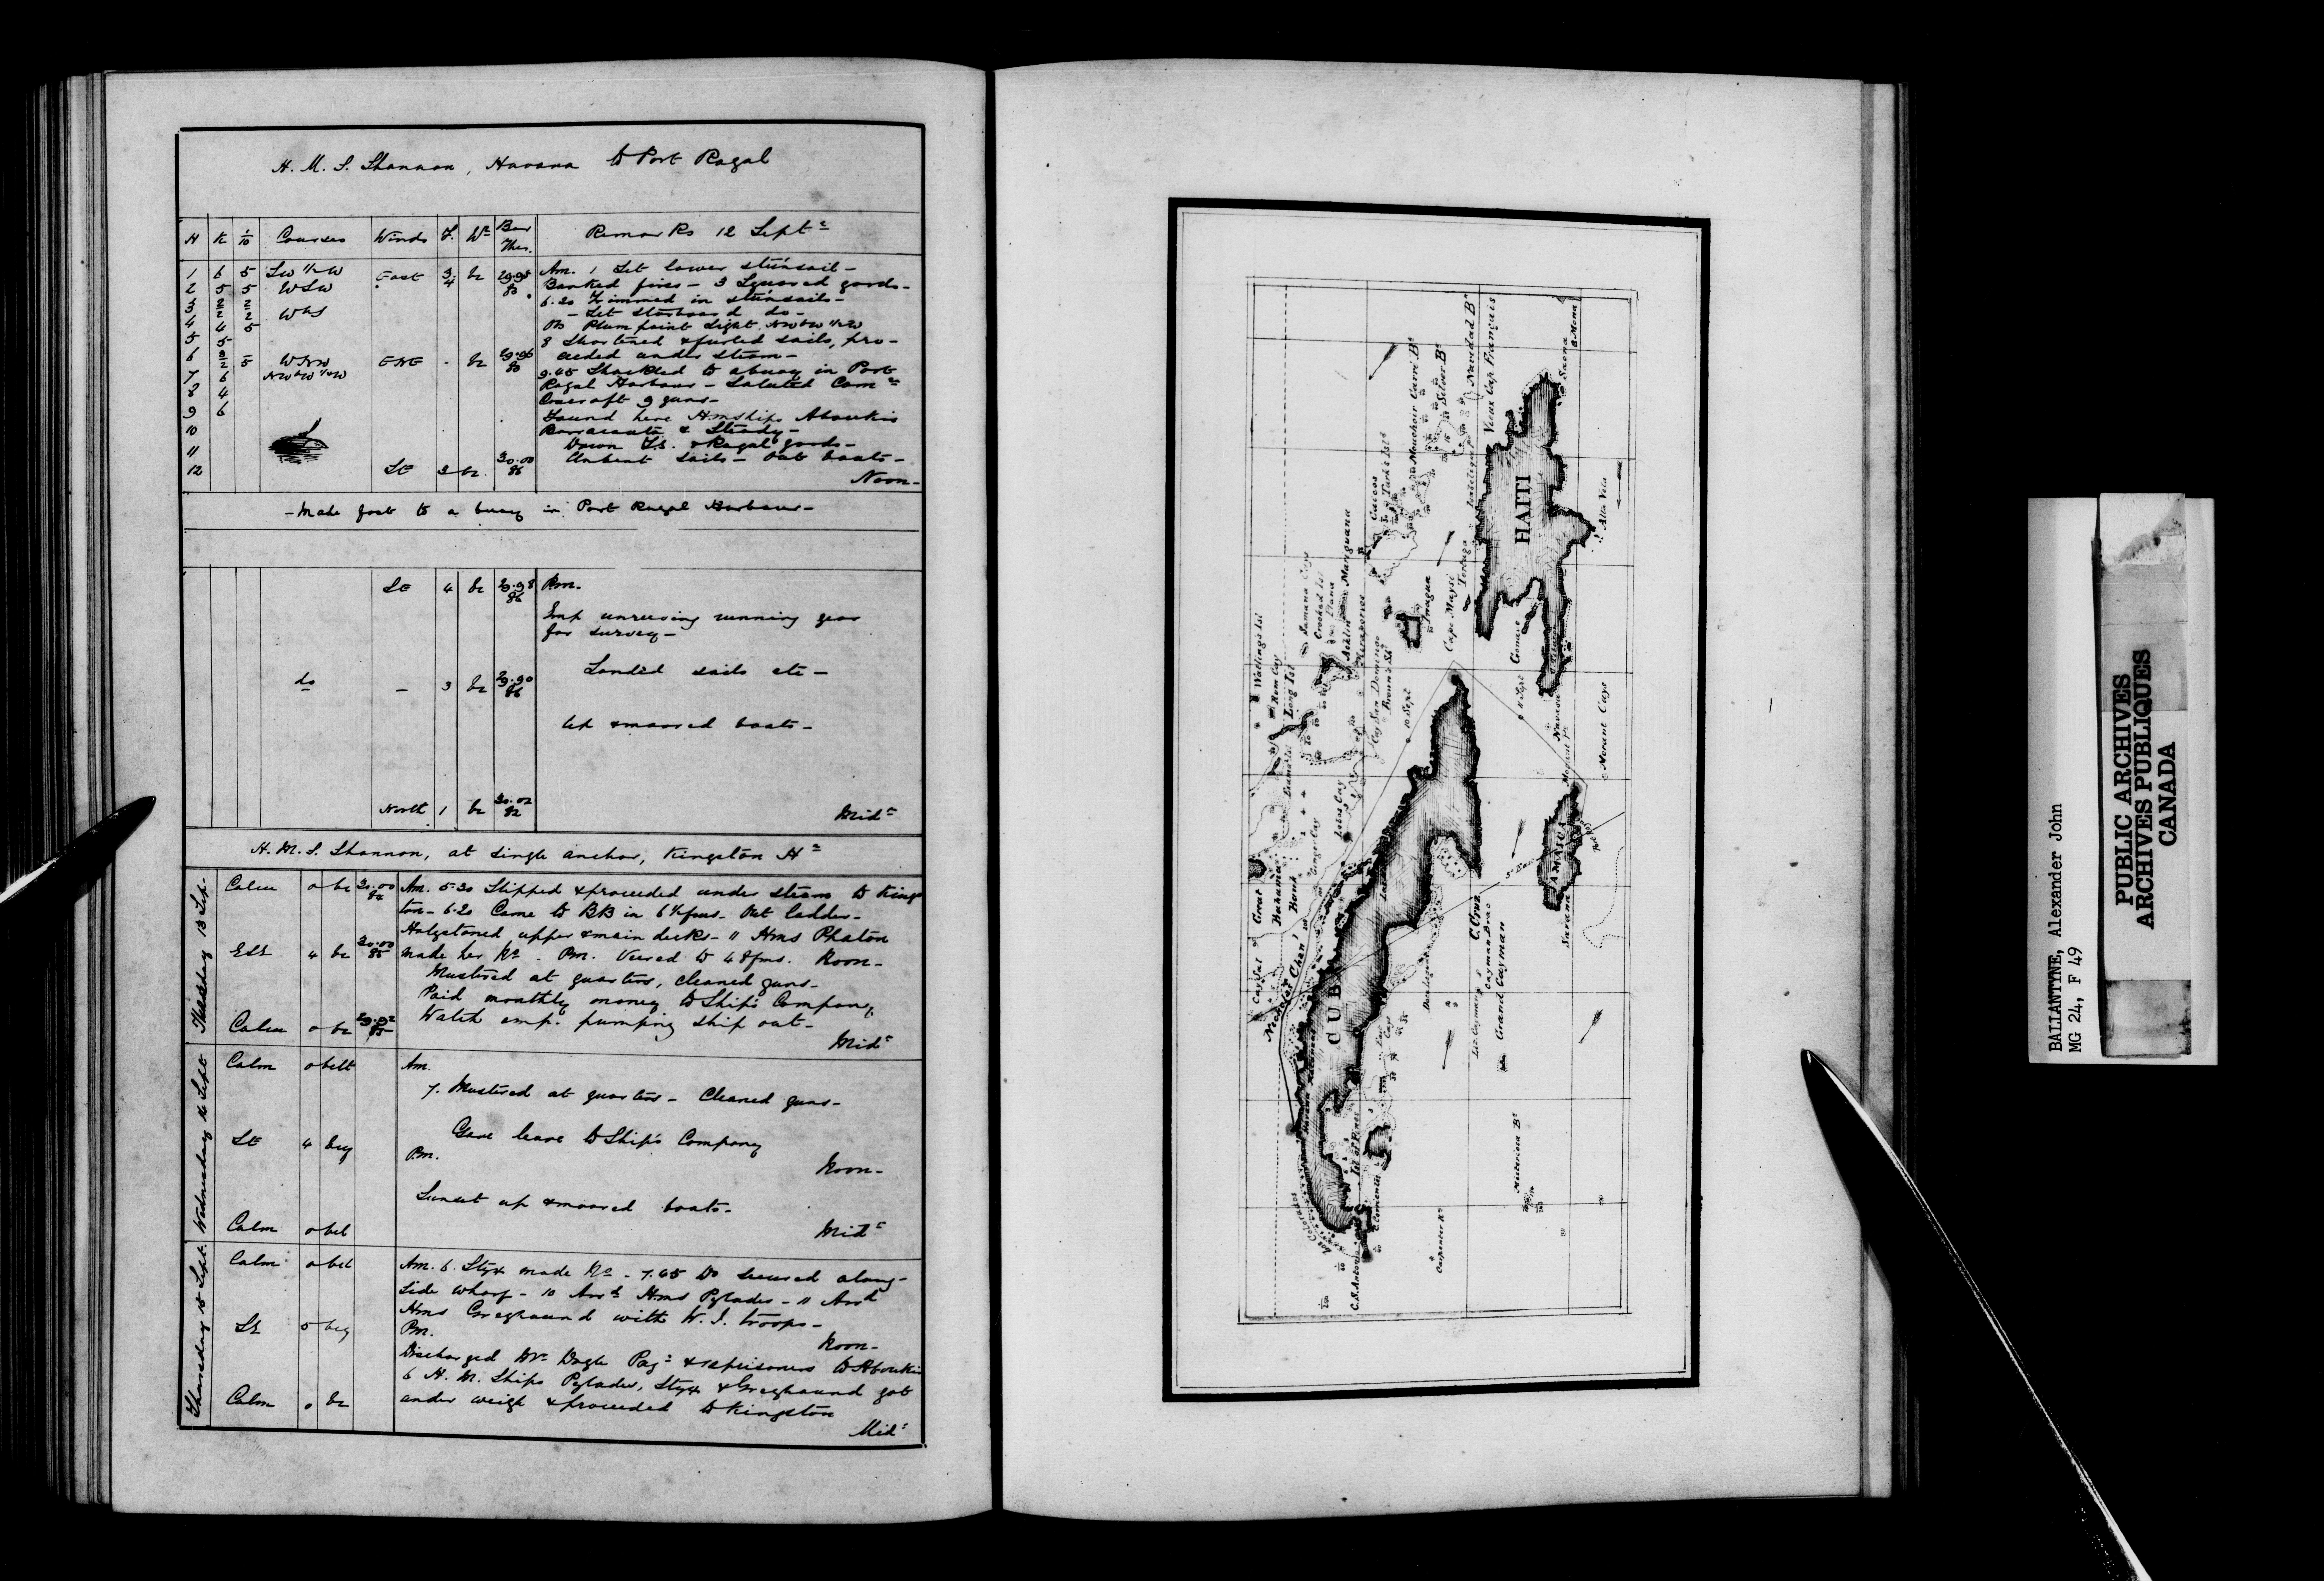 H. M. S. Shannon, Havana to Port Royal
H K 1/10 Courses Winds F. Wr Bar Ther. Remarks 12 Septr
1 6 5 SW 1/2 W East 3.4 bc 29.95 83
2 5 5 WSW
3
4 4 5 WbS
5 5
6 5 WNW ENE - bc 29.96 83
7 6 NWbW 1/2 W
8 4
9 6
10
11
12 SE 3 bc 30.00 86
Am. 1 Set lower stunsail -
Banked fires - 3 Squared yards -
6.20 Trimmed in stunsails -
- Set starboard do -
Obs Plum point Light NWbW 1/2 W
8 Shortened & furled sails, pro-
ceeded under steam -
9.45 Shackled to a buoy in Port
Royal Harbour - Saluted Comre
Cracroft 9 guns -
Found here Hmships Aboukir
Barracouta & Steady -
Down T.S. & Royal yards -
Unbent sails - Out boats -
Noon -
- Made fast to a buoy in Port Royal Harbour -
SE 4 bc 29.98 86 Pm.
Emp unreeving running gear
for survey -
do - 3 bc 29.90 86 Landed sails etc -
Up & moored boats -
North 1 bc 30.02 82 Midt
H. M. S. Shannon, at single anchor, Kingston Hr
Tuesday 13 Sep.
Calm o bc 30.00 84 Am. 5.30 Slipped & proceeded under steam to Kings
ton - 6.20 Came to BB in 6 1/2 fms - Out ladder -
Holystoned upper & main decks - 11 Hms Phaton
ESE 4 bc 30.00 85 made her No. Pm. Veered to 48 fms. Noon -
Mustered at quarters, cleaned guns -
Paid monthly money to Ship's Company
Calm o bc Watch emp. pumping ship out -
Midt
Wednesday 14 Sept
Calm o bclt Am.
7. Mustered at quarters - Cleaned guns -
SE 4 bcq Gave leave to Ship's Company
Pm. Noon -
Sunset up & moored boats -
Calm o bcl Midt
Thursday 15 Sept.
Calm o bcl Am. 6. Styx made No. - 7.45 Do secured along-
side wharf - 10 Arrd Hms Pylades - 11 Arrd
Hms Greyhound with W. I. troops -
SE 5 bcq Pm. Noon -
Discharged Mr Doyle Payr & prisoners to Aboukir
6 H. M. Ships Pylades, Styx & Greyhound got
Calm o bc under weigh & proceeded to Kingston
Midt
Watling's Isl
Rum Cay
Long Isl
Samana Cay
Crooked Isl
Acklin
Mariguana
Caicos
Turk's Isls
Mouchoir Carré Bk
Silver Bk
Navidad Bk
Vieux Cap Français
Samana
Mona
HAITI
Alta Vela
Inagua
Tortuga
Cape Maysi
Gonave
11 Sept
Navassa
Morant Cays
Cay San Domingo
10 Sept
Lobos Cay
Great Bahama Bank
Cay Sal
Nicholas Chanl
CUBA
C. Cruz
Cayman Brac
Lit. Cayman
Grand Cayman
JAMAICA
Morant Pt
Isl of Pines
Colorados
C. S. Antonio
Carpenter Rk
Misteriosa Bk
BALLANTYNE, Alexander John
MG 24, F 49
PUBLIC ARCHIVES
ARCHIVES PUBLIQUES
CANADA